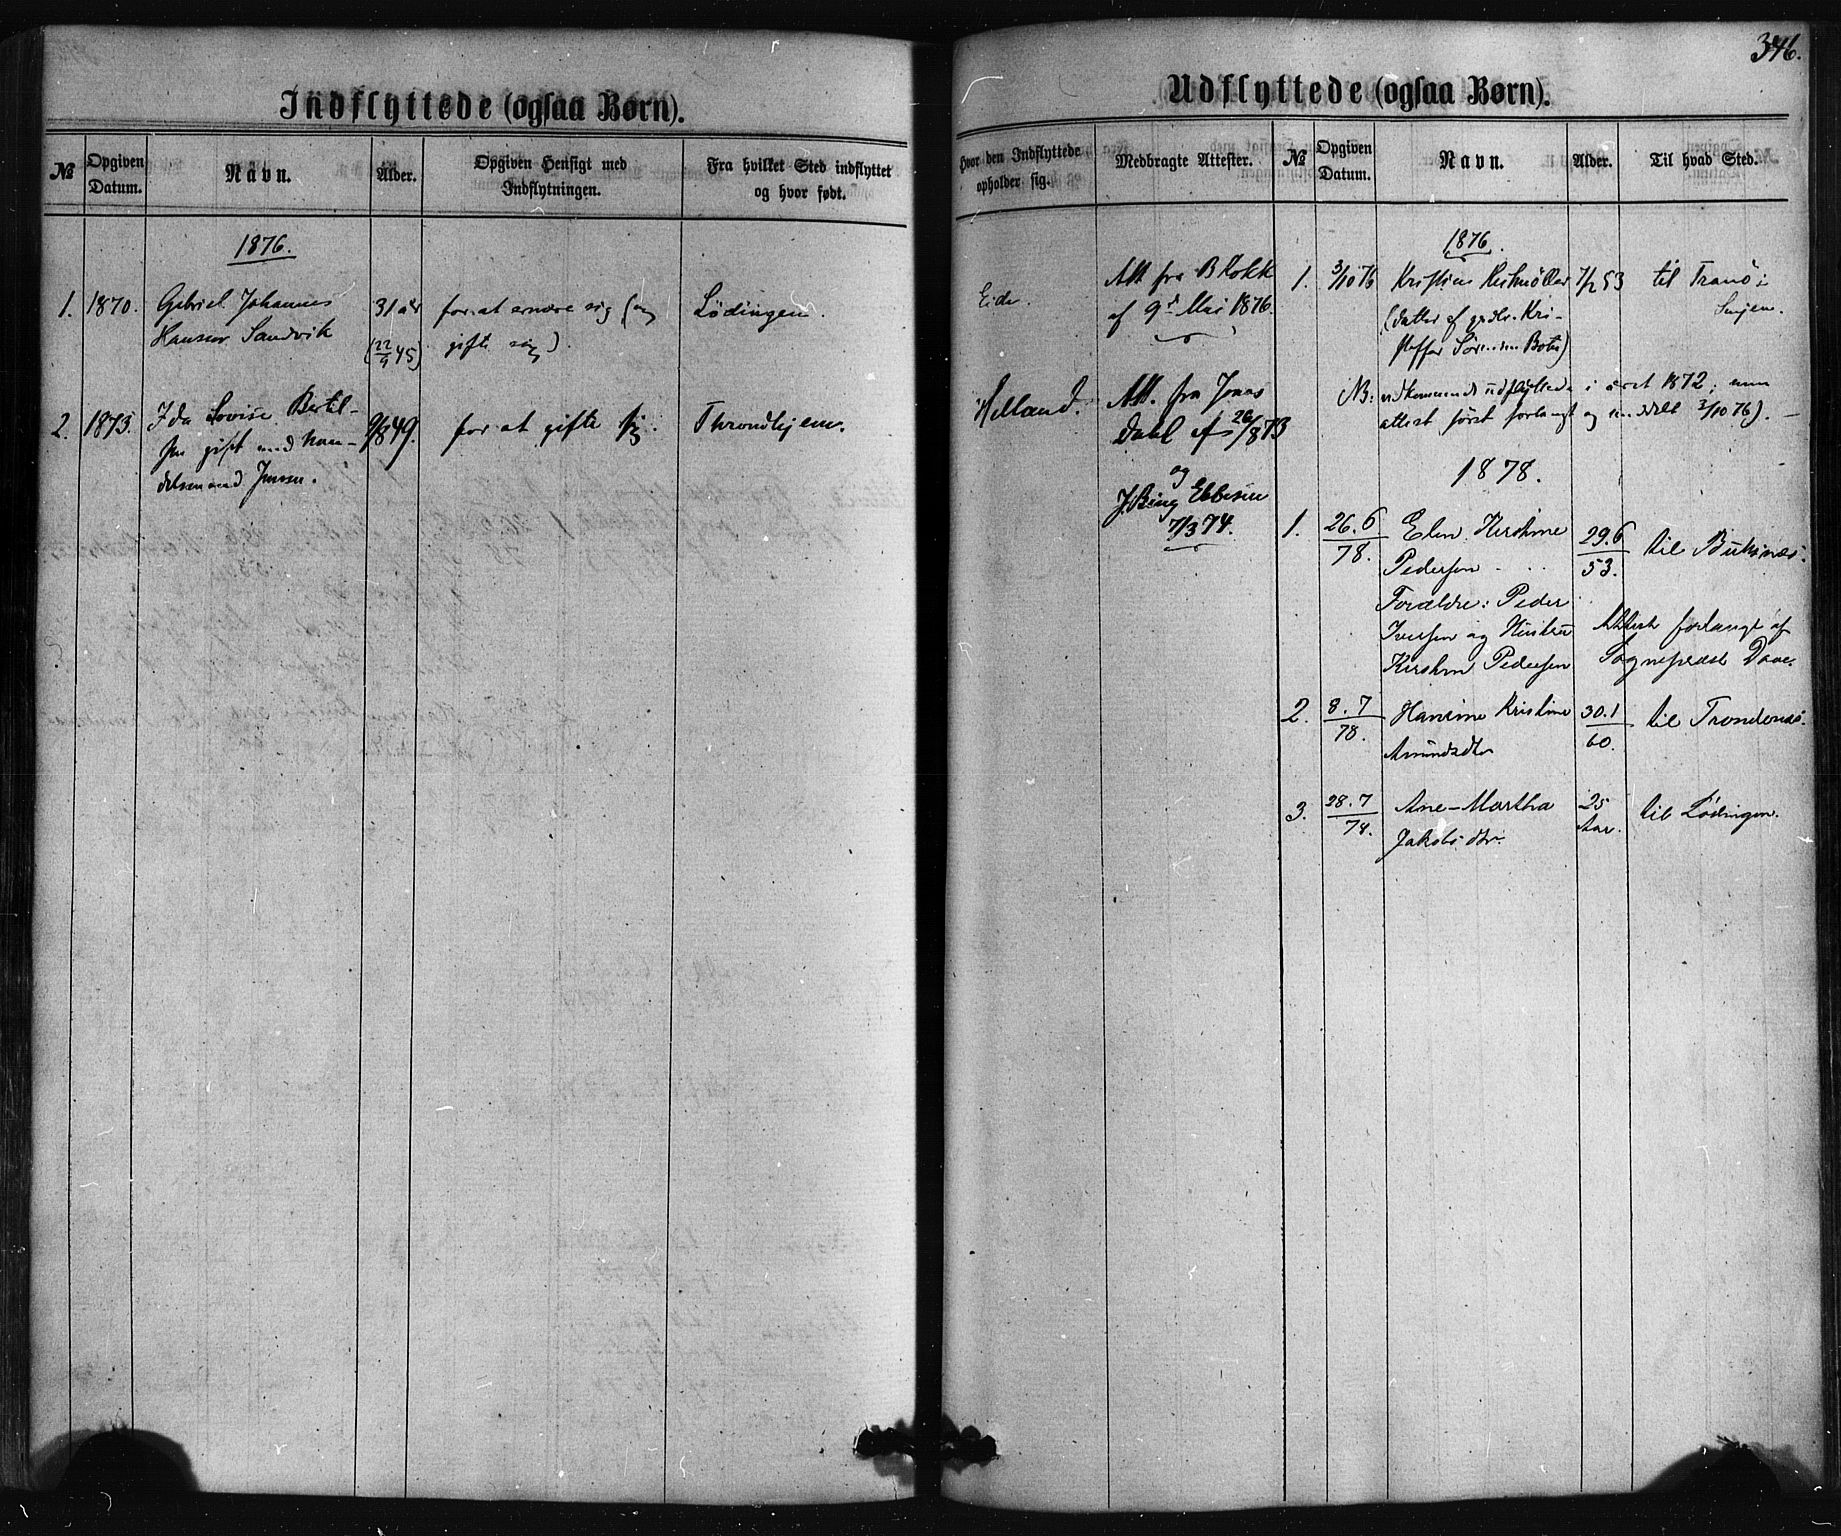 346.
Indflyttede (ogsaa Børn).
№
Opgiven Datum.
Navn.
Alder.
Opgiven Hensigt med Indflytningen.
Fra hvilket Sted indflyttet og hvor født.
1876.
1. 1870. Gabriel Johannes 31 år for at ernære sig (og Lödingen.
Hansen Sandvik (22/9 45) gifte sig).
2. 1873. Ida Lovise Bertel- 9/8 49. for at gifte sig. Throndhjem.
sen gift med han-
delsmand Jensen.
Udflyttede (ogsaa Børn).
Hvor den Indflyttede opholder sig.
Medbragte Attester.
№
Opgiven Datum.
Navn.
Alder.
Til hvad Sted.
Eide.
Att. fra B Kokk
af 9de Mai 1876.
Helland.
Att. fra Jonas
Dahl af 26/8 73
og
J. Bing Ebbesen
7/3 74.
1876.
1. 3/10 76 Kristine 7/2 53 til Tranö i
(datter af grdbr. Kri- Senjen.
stoffer Sörensen Botn)
NB: vedkommende udflyttede i året 1872; men
attest först forlangt og meddelt 3/10 76).
1878.
1. 26.6/78. Elen Kirstine 29.6/53. til Buksnæs.
Pedersen
Forældre: Peder
Iversen og Hustru Attest forlangt af
Kirstine Pedersen Sognepræst Daae.
2. 8.7/78. Hansine Kristine 30.1/60. til Trondenæs.
Amundsdtr
3. 28.7/74. Ane-Martha 25 Aar. til Lödingen.
Jakobsdtr.